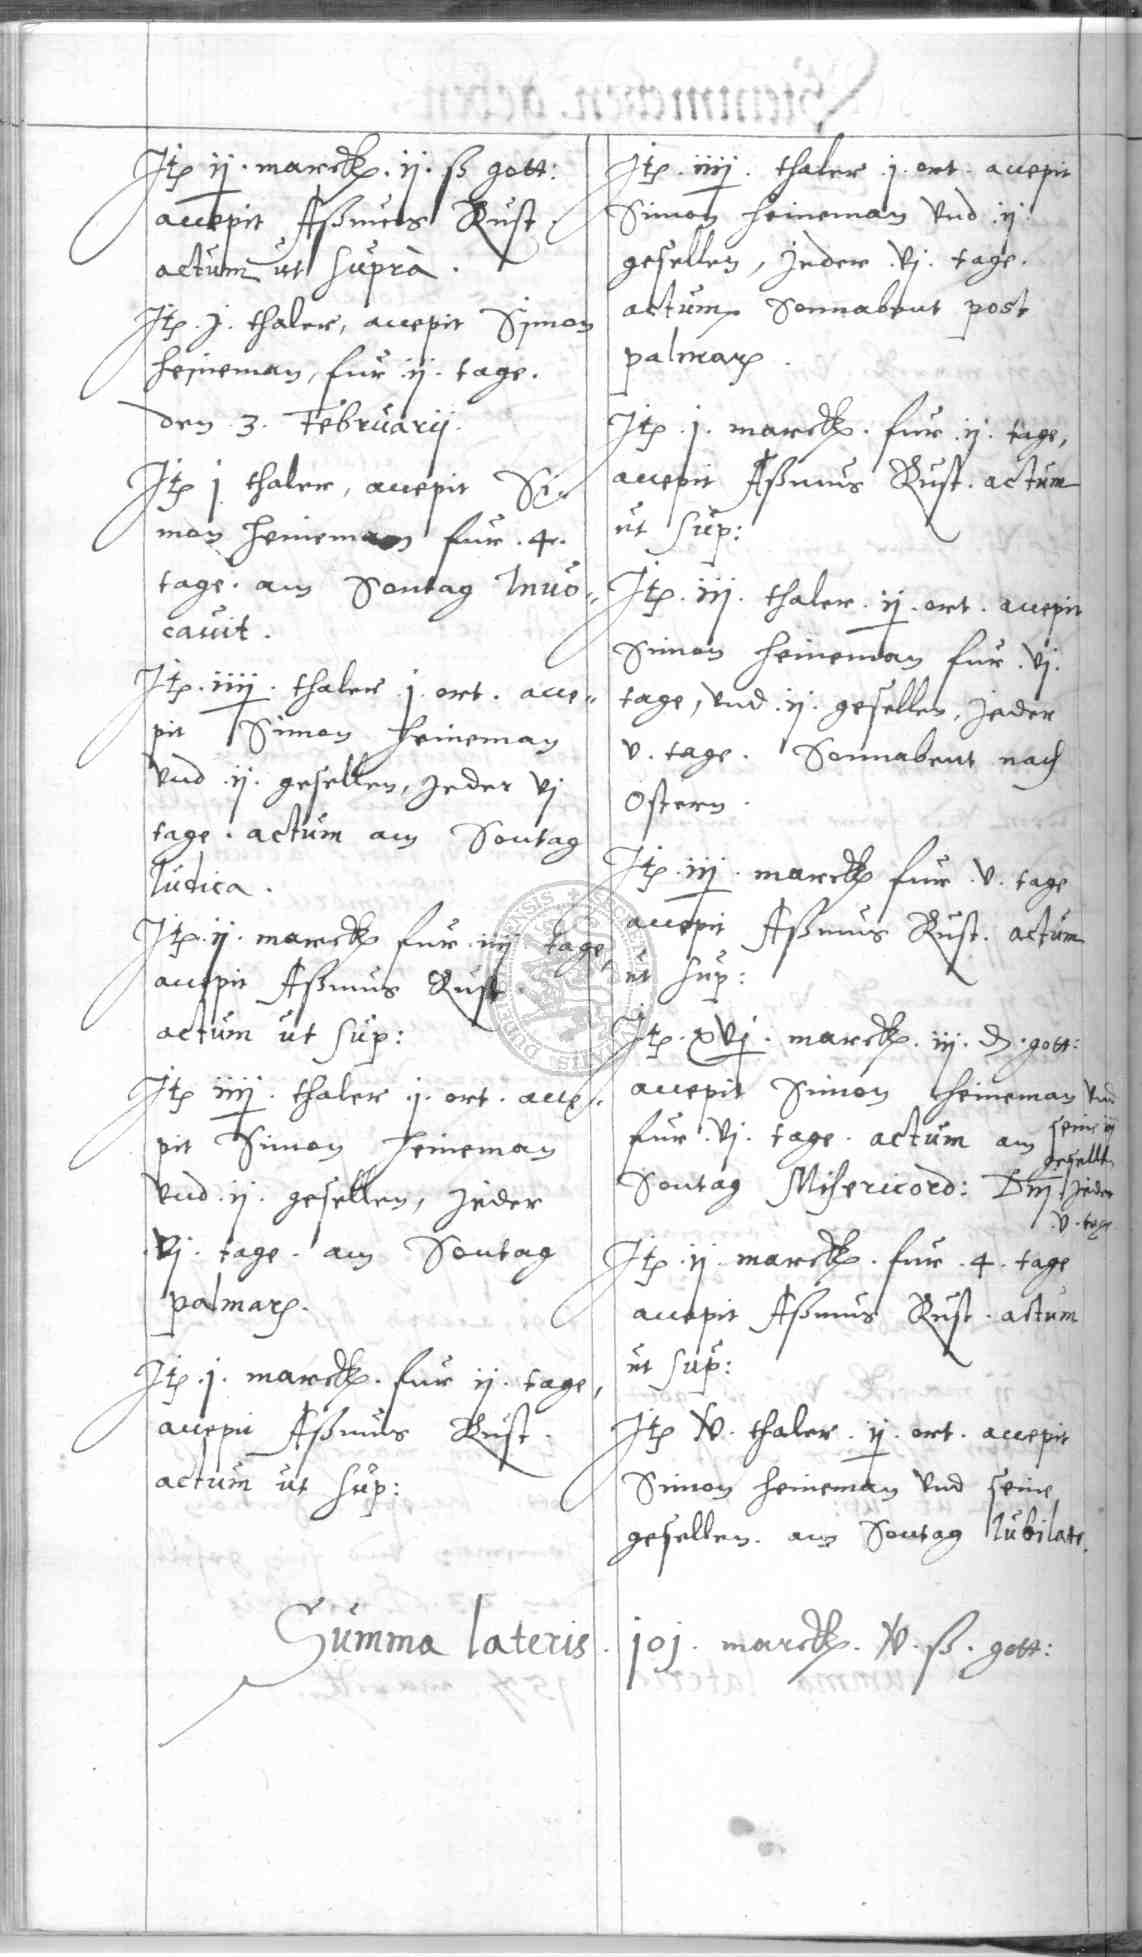 Jtꝫ ij. marckꝫ. ij. ß gott:
accepit Aßmus Rust.
actum ut suprà.
Jtꝫ. j. thaler, accepit Simon
heineman, fur .ij. tage.
den 3. Februarij.
Jtꝫ j thaler, accepit Si-
mon heineman fur .4.
tage. am Sontag Inuo-
cauit.
Jtꝫ. iiij. thaler j. ort. acce-
pit Simon heineman
vnd .ij. gesellen, Jeder vj
tage. actum am Sontag
Iudica.
Jtꝫ. ij. marckꝫ fur .iiij tage,
accepit Aßmus Rust.
actum ut sup:
Jtꝫ iiij. thaler .j. ort. acce-
pit Simon heineman
vnd .ij. gesellen, Jeder
.vj. tage. am Sontag
palmarꝫ.
Jtꝫ. j. marckꝫ. fur ij. tage,
accepit Aßmus Rust.
actum ut sup:
Jtꝫ. iiij. thaler .j. ort. accepit
Simon heineman vnd .ij.
gesellen, Jeder .vj. tage.
actum Sonnabent post
palmarꝫ.
Jtꝫ .j. marckꝫ. fur .ij. tage,
accepit Aßmus Rust. actum
ut sup:
Jtꝫ. iij. thaler. ij. ort. accepit
Simon heineman fur .vj.
tage, vnd .ij. gesellen, Jeder
v. tage. Sonnabent nach
Ostern.
Jtꝫ. iij. marckꝫ fur .v. tage
accepit Aßmus Rust. actum
ut sup:
Jtꝫ. xvj. marckꝫ. iij. ₰. gott:
accepit Simon heineman vnd
fur .vj. tage. actum am seine ij
gesellen
Sontag Misericord: Dnj. Jeder
.v. tage
Jtꝫ. ij. marckꝫ. fur .4. tage
accepit Aßmus Rust. actum
ut sup:
Jtꝫ iv. thaler. ij. ort. accepit
Simon heineman vnd seine
gesellen. am Sontag Iubilate.
Summa lateris. joj. marckꝫ. iv. ß. gott: